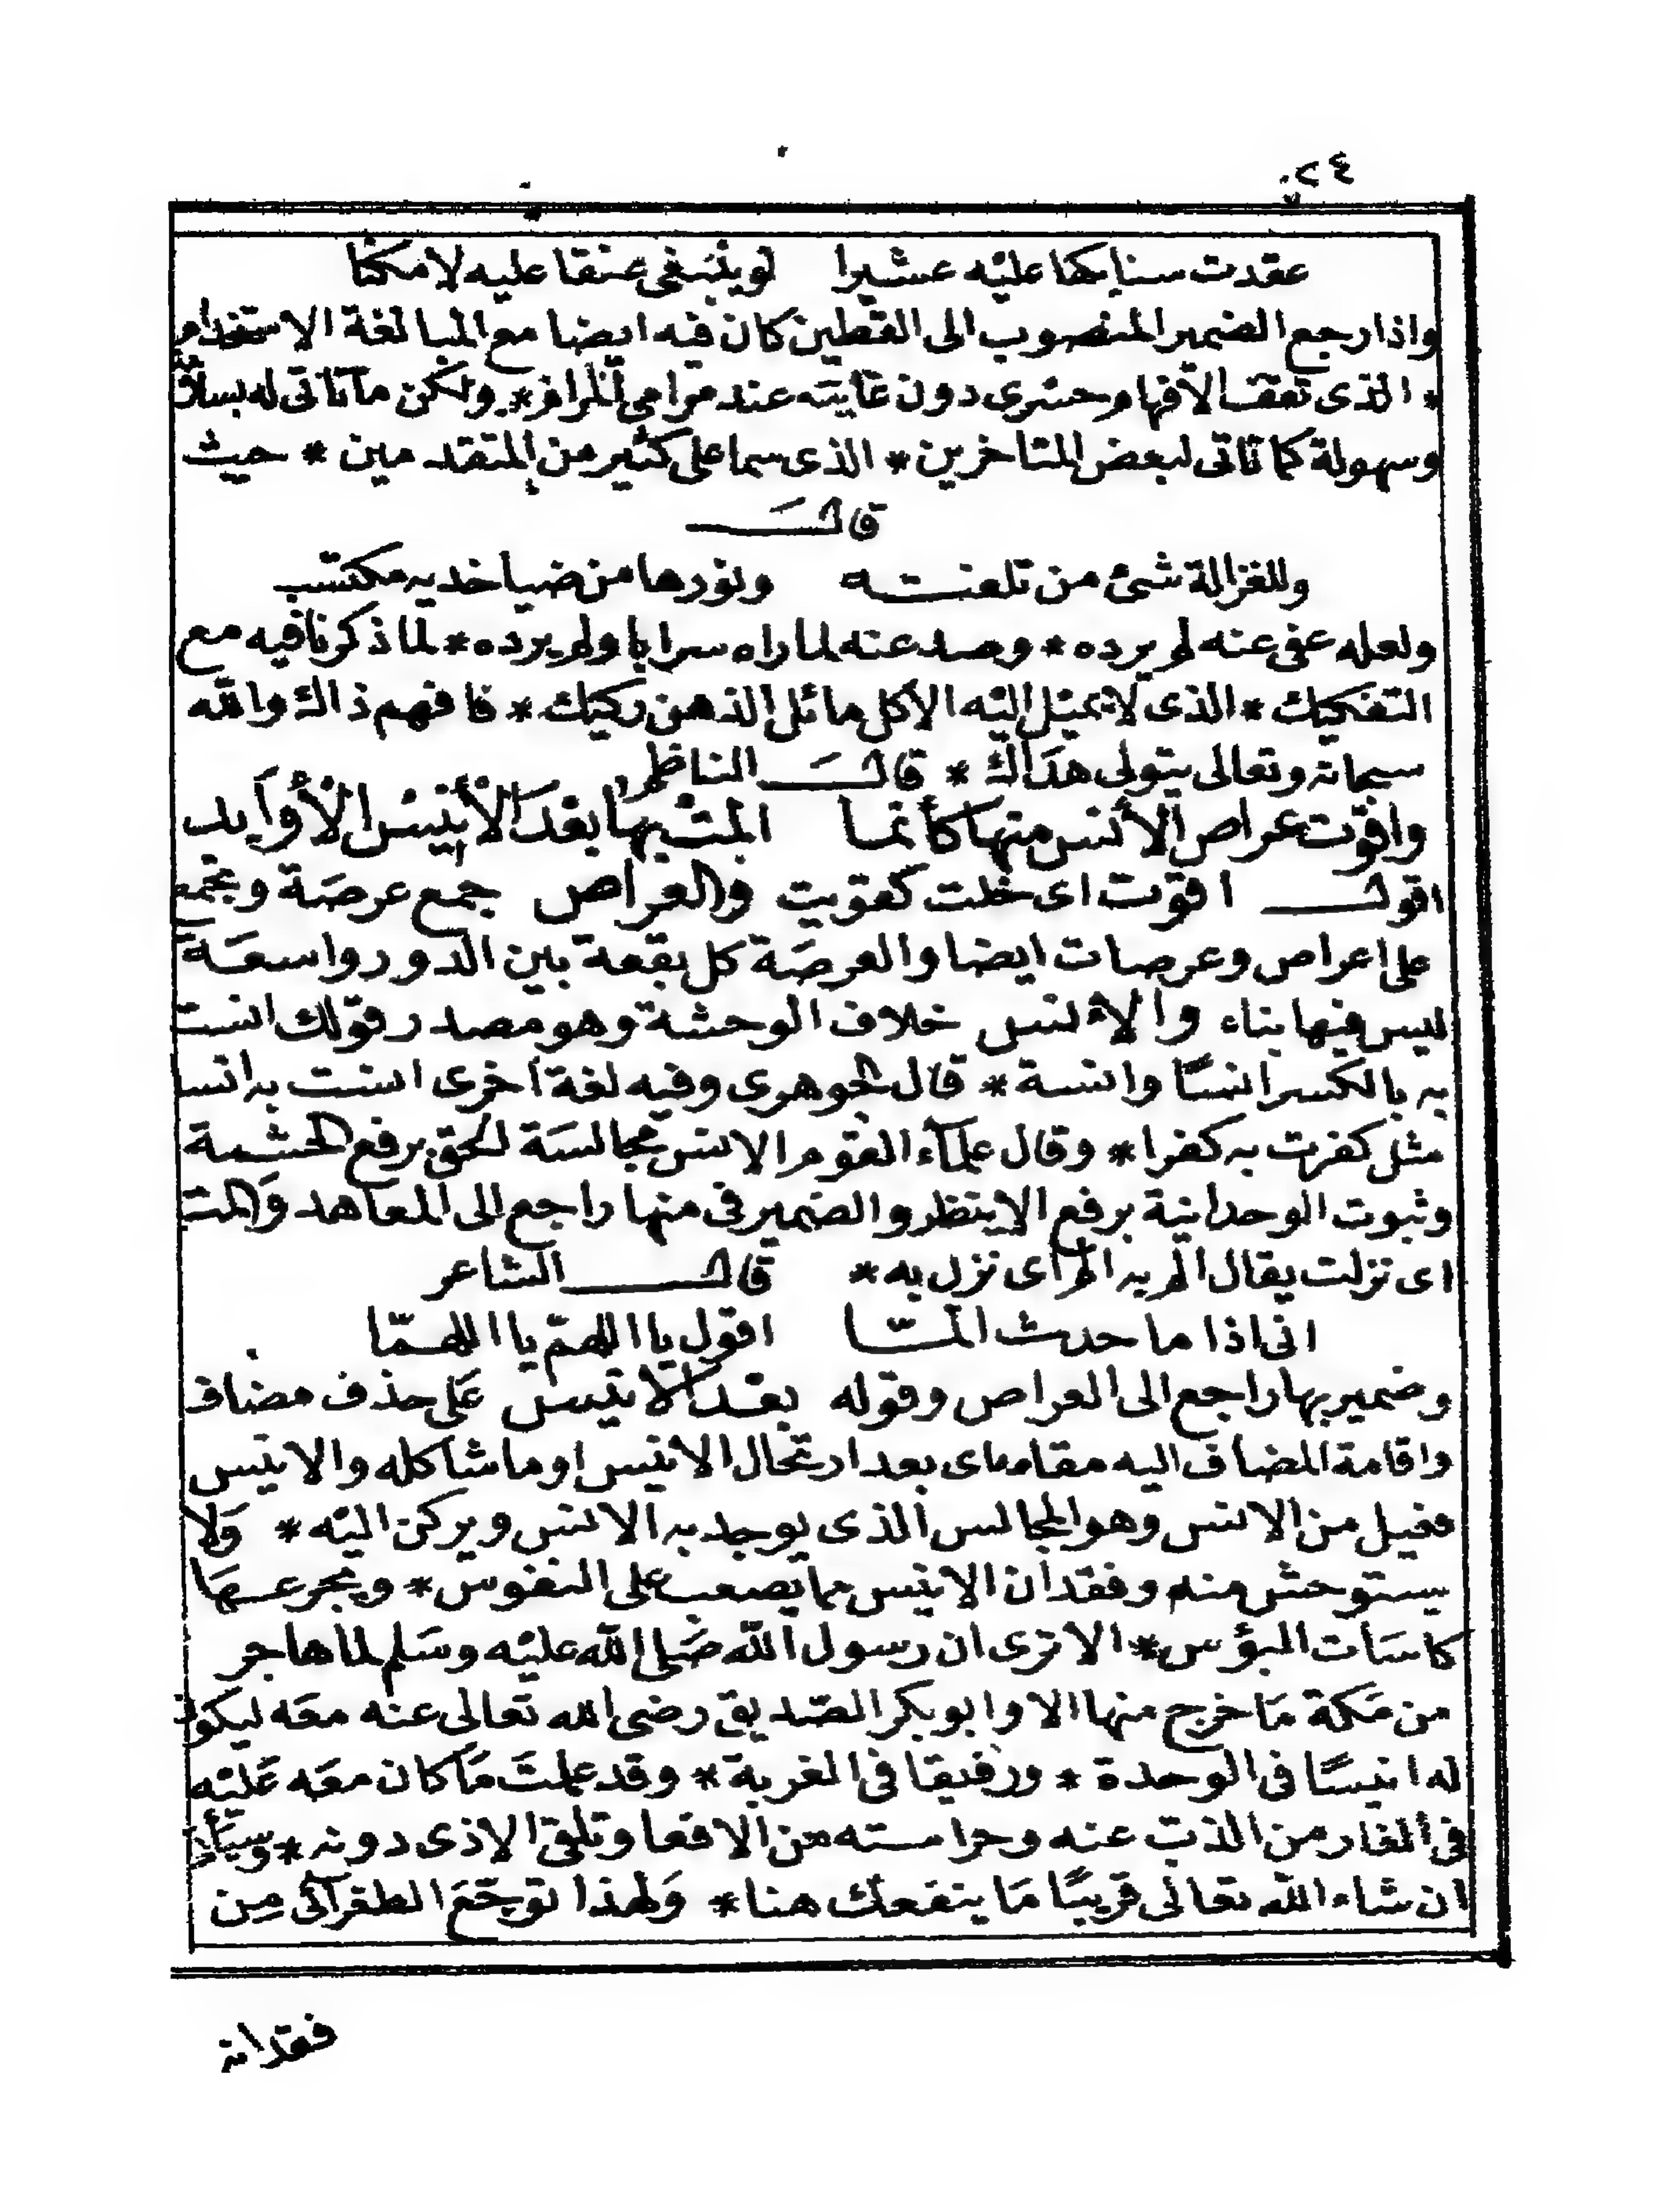 ٢٤
عقدت سنابكها عليه عشيرا لو يبتغى عنقا عليه لامكنا
واذا رجع الضمير المنصوب الى القطين كان فيه ايضا مع المبالغة الاستخدام
* الذى تقف الافهام حسرى دون غايته عند مرامى المرام * ولكن ما تاتى له بسلاقة
وسهولة كما تاتى لبعض المتاخرين * الذى سما على كثير من المتقدمين * حيث
قال
وللغزالة شئ من تلفته ونورها من ضيا خديه مكتسب
ولعله عفى عنه لم يرده * وصد عنه لما راه سرابا ولم يرده * لما ذكرنا فيه مع
التفكيك * الذى لا يميل اليه الا كل مائل الذهن ركيك * فافهم ذاك والله
سبحانه وتعالى يتولى هداك * قال الناظم
واقوت عراص الأنس منها كأنما المت بها بعد الأنيس الأوابد
اقول اقوت اى خلت كقويت والعراص جمع عرصة وتجمع
على اعراص وعرصات ايضا والعرصة كل بقعة بين الدور واسعة
ليس فيها بناء والانس خلاف الوحشة وهو مصدر قولك انست
به بالكسر انسًا وانسة * قال الجوهرى وفيه لغة اخرى انست به انسا
مثل كفرت به كفرا * وقال علماء القوم الانس مجالسة الحق برفع الحشمة
وثبوت الوحدانية برفع الاينظر والضمير فى منها راجع الى المعاهد والمت
اى نزلت يقال الم به الم اى نزل به * قال الشاعر
انى اذا ما حدث المّا اقول يا اللهمّ يا اللهمّا
وضمير بها راجع الى العراص وقوله بعد الانيس على حذف مضاف
واقامة المضاف اليه مقامه اى بعد ارتحال الانيس او ما شاكله والانيس
فعيل من الانس وهو المجالس الذى يوجد به الانس ويركن اليه * ولا
يستوحش منه وفقدان الانيس مما يصعب على النفوس * ويجرعها
كاسات البؤس * الا ترى ان رسول الله صلى الله عليه وسلم لما هاجر
من مكة ما خرج منها الا وابو بكر الصّديق رضى الله تعالى عنه معه ليكون
له انيسًا فى الوحدة * ورفيقا فى الغربة * وقد علمت ما كان معه عليه
فى الغار من الذب عنه وحراسته من الافعا وتلقى الاذى دونه * وسيأتى
ان شاء الله تعالى قريبًا ما ينفعك هنا * ولهذا توجع الطغرآئى من
فقدانه